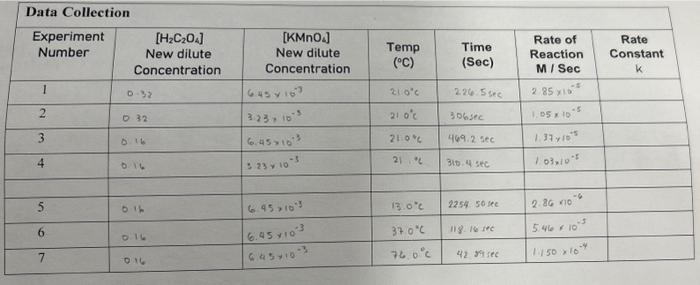 Data Collection
Experiment Number [H₂C₂O₄] New dilute Concentration [KMnO₄] New dilute Concentration Temp (°C) Time (Sec) Rate of Reaction M / Sec Rate Constant k
1 0.32 6.45 x 10⁻³ 21.0°C 226.5 sec 2.85 x 10⁻⁵
2 0.32 3.23 x 10⁻³ 21.0°C 306 sec 1.05 x 10⁻⁵
3 0.16 6.45 x 10⁻³ 21.0°C 469.2 sec 1.37 x 10⁻⁵
4 0.16 3.23 x 10⁻³ 21. °C 310.4 sec 1.03 x 10⁻⁵
5 0.16 6.45 x 10⁻³ 13.0°C 2254.50 sec 2.86 x 10⁻⁶
6 0.16 6.45 x 10⁻³ 37.0°C 118.16 sec 5.46 x 10⁻⁵
7 0.16 6.45 x 10⁻³ 76.0°C 42.89 sec 1.150 x 10⁻⁴